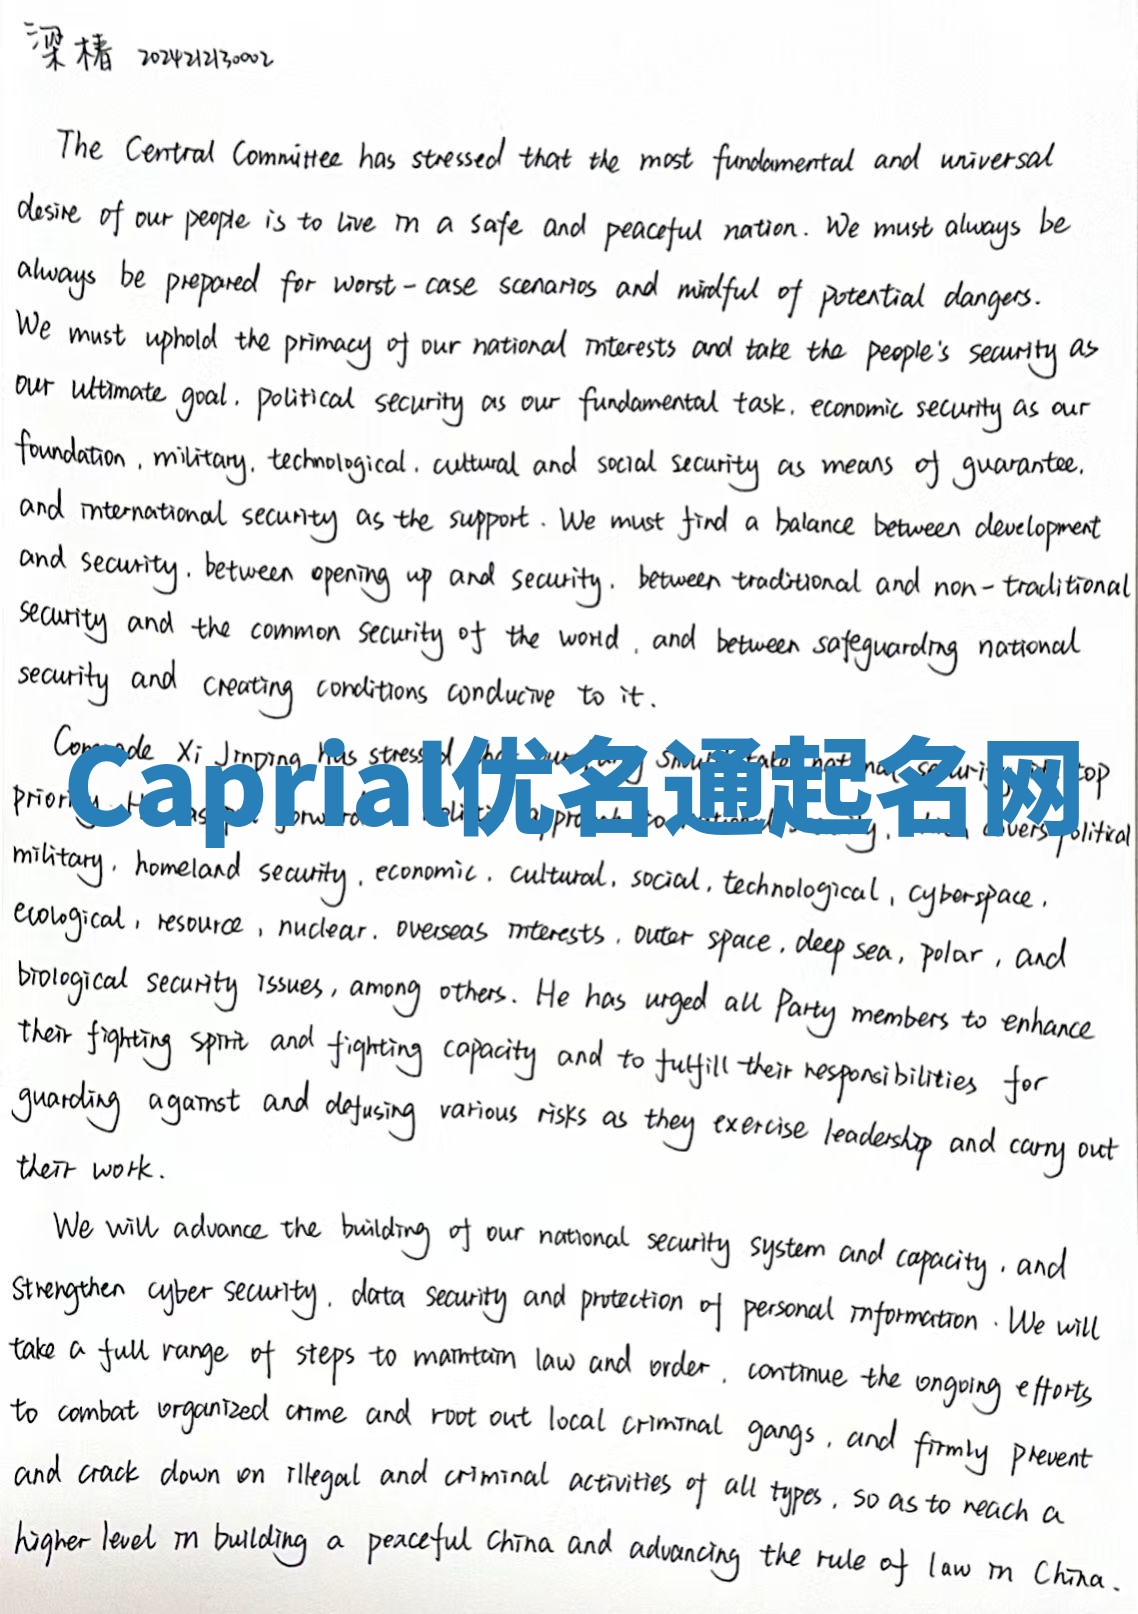 梁椿 2024212130002
The Central Committee has stressed that the most fundamental and universal
desire of our people is to live in a safe and peaceful nation. We must always be
always be prepared for worst-case scenarios and mindful of potential dangers.
We must uphold the primacy of our national interests and take the people's security as
our ultimate goal, political security as our fundamental task, economic security as our
foundation, military, technological, cultural and social security as means of guarantee,
and international security as the support. We must find a balance between development
and security, between opening up and security, between traditional and non-traditional
security and the common security of the world, and between safeguarding national
security and creating conditions conducive to it.
Comrade Xi Jinping has stressed take national security top
Caprial优名通起名网
priority approach to security, covers political
military, homeland security, economic, cultural, social, technological, cyberspace,
ecological, resource, nuclear, overseas interests, outer space, deep sea, polar, and
biological security issues, among others. He has urged all Party members to enhance
their fighting spirit and fighting capacity and to fulfill their responsibilities for
guarding against and defusing various risks as they exercise leadership and carry out
their work.
We will advance the building of our national security system and capacity, and
strengthen cyber security, data security and protection of personal information. We will
take a full range of steps to maintain law and order, continue the ongoing efforts
to combat organized crime and root out local criminal gangs, and firmly prevent
and crack down on illegal and criminal activities of all types, so as to reach a
higher level in building a peaceful China and advancing the rule of law in China.